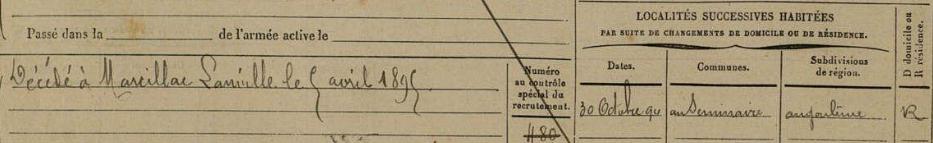 Passé dans la de l'armée active le
Décédé à Marcillac Lanville le 5 avril 1895
Numéro
au contrôle
spécial du
recrutement.
480
LOCALITÉS SUCCESSIVES HABITÉES
PAR SUITE DE CHANGEMENTS DE DOMICILE OU DE RÉSIDENCE.
Dates. Communes. Subdivisions
de région.
D domicile ou
R résidence.
30 Octobre 94 au Séminaire angoulême R